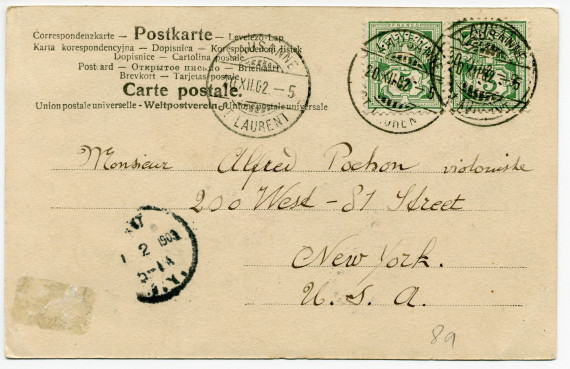 Correspondenzkarte — Postkarte — Levelező-Lap
Karta korespondencyjna — Dopisnica — Korespondenční lístek
Dopisnice — Cartolina postale
Post card — Открытое письмо — Briefkaart
Brevkort — Tarjetas postales
Carte postale.
Union postale universelle - Weltpostverein - Unione postale universale
LAUSANNE
20.XII.02.–5
ST LAURENT
FRANCO
LAUSANNE
20.XII.02.–5
LAURENT
LAUSANNE
20.XII.02.–5
Monsieur Alfred Pochon violoniste
200 West - 81 Street
New York.
U. S. A.
1 2 1903
5-1A
N.Y.
89